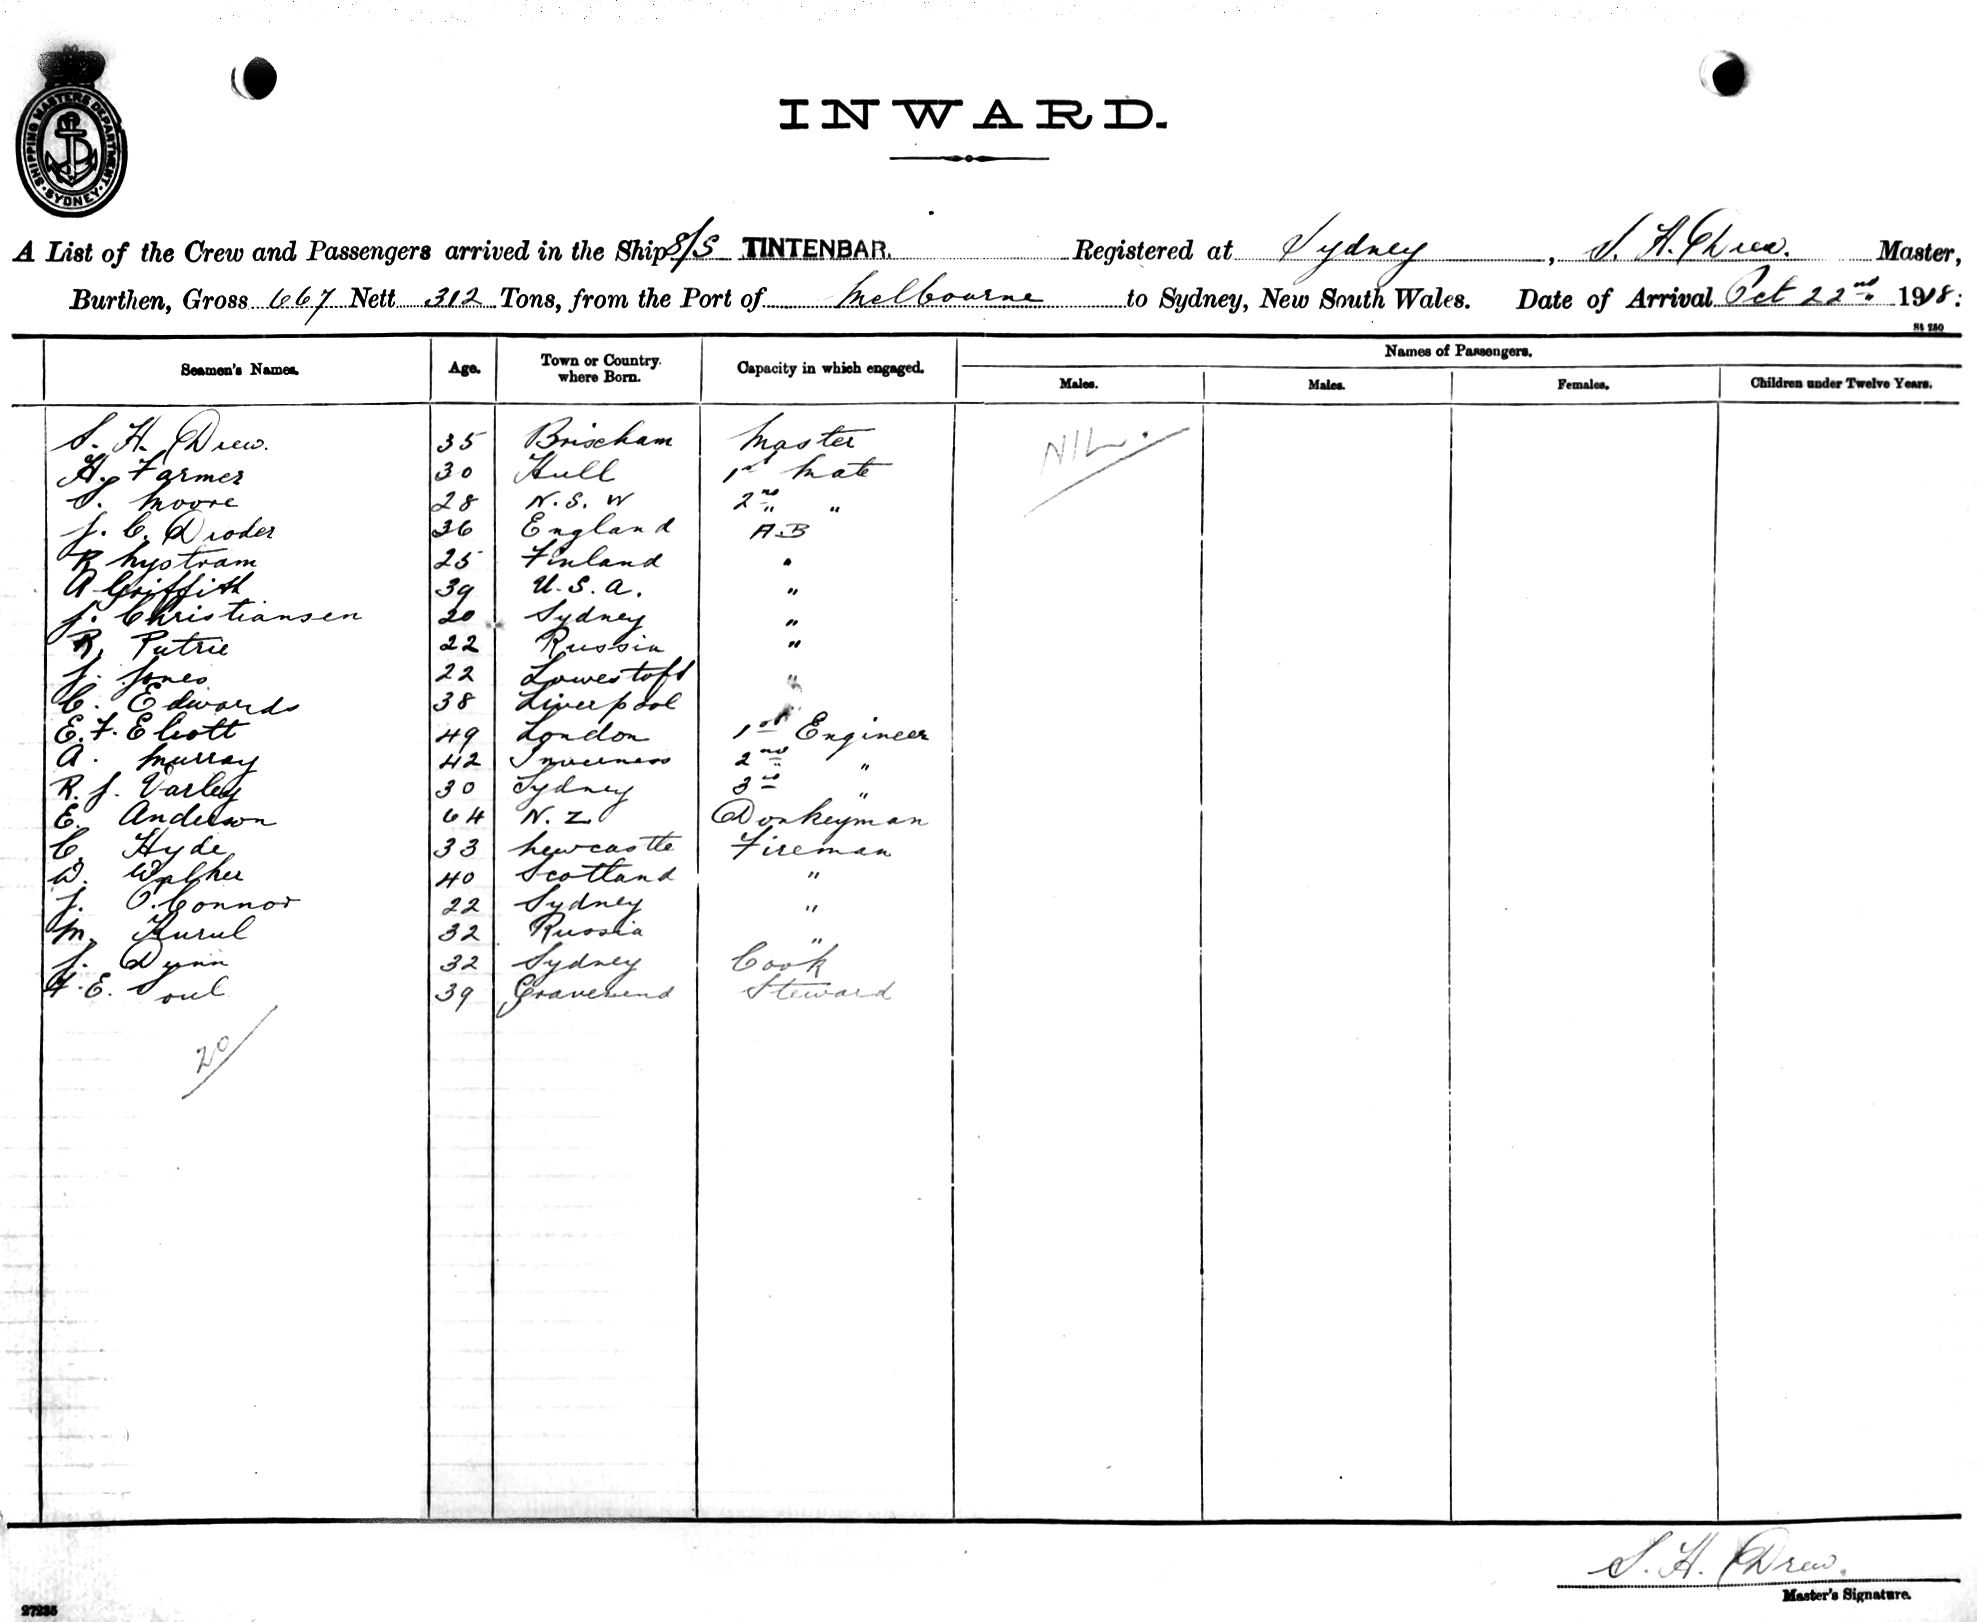 SHIPPING MASTERS DEPARTMENT · SYDNEY ·
INWARD.
A List of the Crew and Passengers arrived in the Ship S/S TINTENBAR. Registered at Sydney, S. H. Drew. Master,
Burthen, Gross 667 Nett 312 Tons, from the Port of Melbourne to Sydney, New South Wales. Date of Arrival Oct 22nd 1918:
St 250
Seamen's Names. Age. Town or Country where Born. Capacity in which engaged. Names of Passengers.
Males. Males. Females. Children under Twelve Years.
S. H. Drew. 35 Brixham Master NIL.
H. Farmer 30 Hull 1st Mate
S. Moore 28 N.S.W 2nd "
J. C. 36 England A.B
R Nystrom 25 Finland "
A Griffith 39 U.S.A. "
J. Christiansen 20 Sydney "
R. Putrie 22 Russia "
J. Jones 22 Lowestoft "
C. Edwards 38 Liverpool
E. F. Eliott 49 London 1st Engineer
A. Murray 42 Inverness 2nd "
R. J. Varley 30 Sydney 3rd "
E. Anderson 64 N.Z Donkeyman
C. Hyde 33 Newcastle Fireman
W. Walker 40 Scotland "
J. O.Connor 22 Sydney "
M. Kurul 32 Russia "
J. Dunn 32 Sydney Cook
F. E. Soul 39 Gravesend Steward
20
S. H. Drew.
Master's Signature.
27235